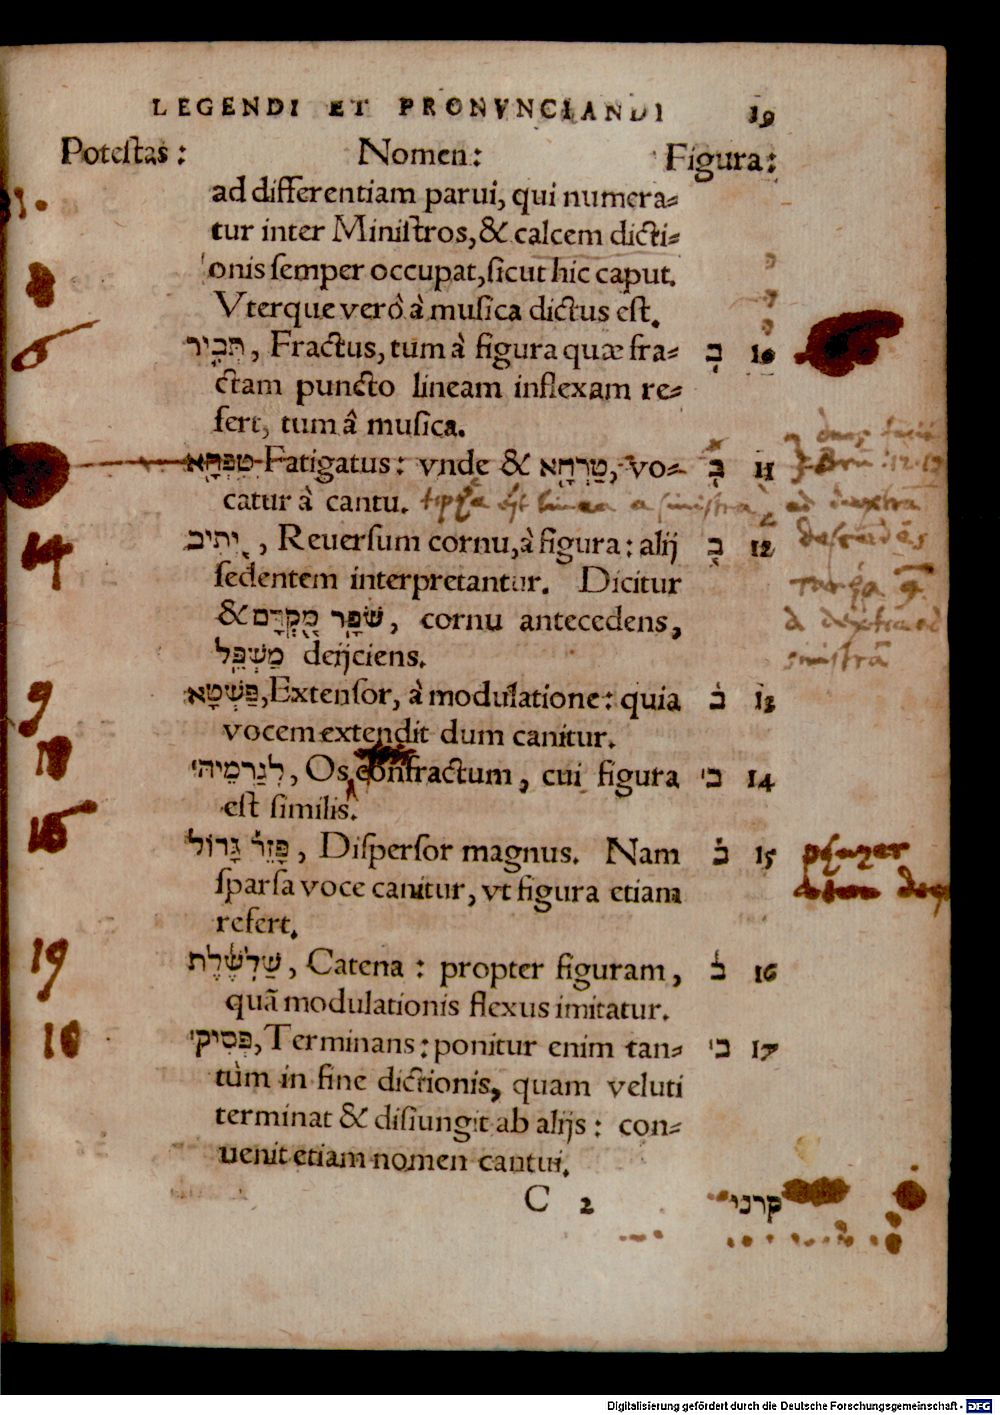 LEGENDI ET PRONVNCIANDI 19
Poteſtas: Nomen: Figura:
ad differentiam parui, qui numera-
tur inter Miniſtros, & calcem dicti-
onis ſemper occupat, ſicut hic caput.
Vterque verò à muſica dictus eſt.
תְּבִיר, Fractus, tum à figura quæ fra- ב֛ 10
ctam puncto lineam inflexam re-
fert, tum â muſica.
טִפְּחָא Fatigatus: vnde & טַרְחָא, vo- ב֖ 11
catur à cantu. tiphha eſt linea a siniſtra
ad dextra
descendēs
13
9
18
16
19
10
יְתִיב, Reuerſum cornu, à figura: alij ב֚ 12
ſedentem interpretantur. Dicitur
& שֹׁפָר מֻקְדָּם, cornu antecedens,
מַשְׁפֵּל deijciens.
a dextra ad
siniſtrā
פַּשְׁטָא, Extenſor, à modulatione: quia ב֙ 13
vocem extendit dum canitur.
לְגַרְמֵיהּ, Os confractum, cui figura ב׀ 14
eſt ſimilis.
פָּזֵר גָּדוֹל, Diſperſor magnus. Nam ב֡ 15
ſparſa voce canitur, vt figura etiam
refert.
שַׁלְשֶׁלֶת, Catena: propter figuram, ב֓ 16
quā modulationis flexus imitatur.
פְּסִיק׀, Terminans: ponitur enim tan- ב׀ 17
tùm in fine dictionis, quam veluti
terminat & diſiungit ab alijs: con-
uenit etiam nomen cantui.
C 2 קרני
Digitalisierung gefördert durch die Deutsche Forschungsgemeinschaft - DFG